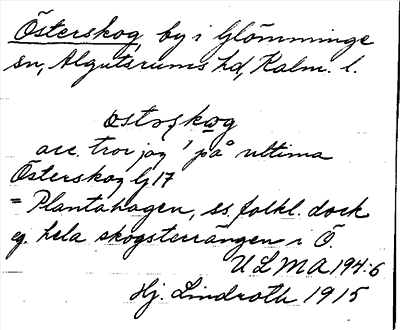 Österskog, by i Glömminge
sn, Algutsrums hd, Kalm. l.
acc. tror jag ' på ultima
Österskog lj 17
= Plantahagen, ss. folkl. dock
eg. hela skogsterrängen i Ö.
ULMA 194:6
Hj. Lindroth 1915